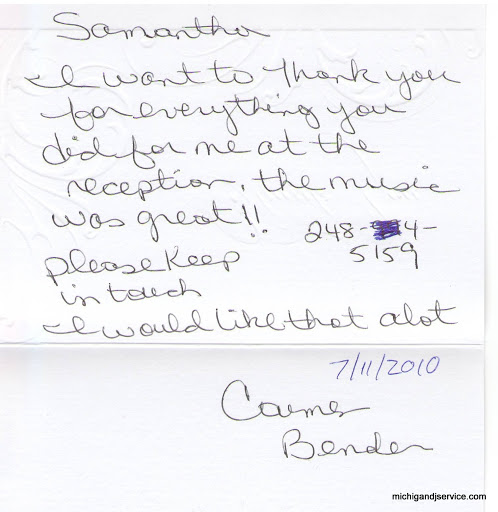 Samantha
I want to thank you
for everything you
did for me at the
reception. the music
was great!!
248-4-
5159
please keep
in touch
I would like that alot
7/11/2010
Bender
michigandjservice.com